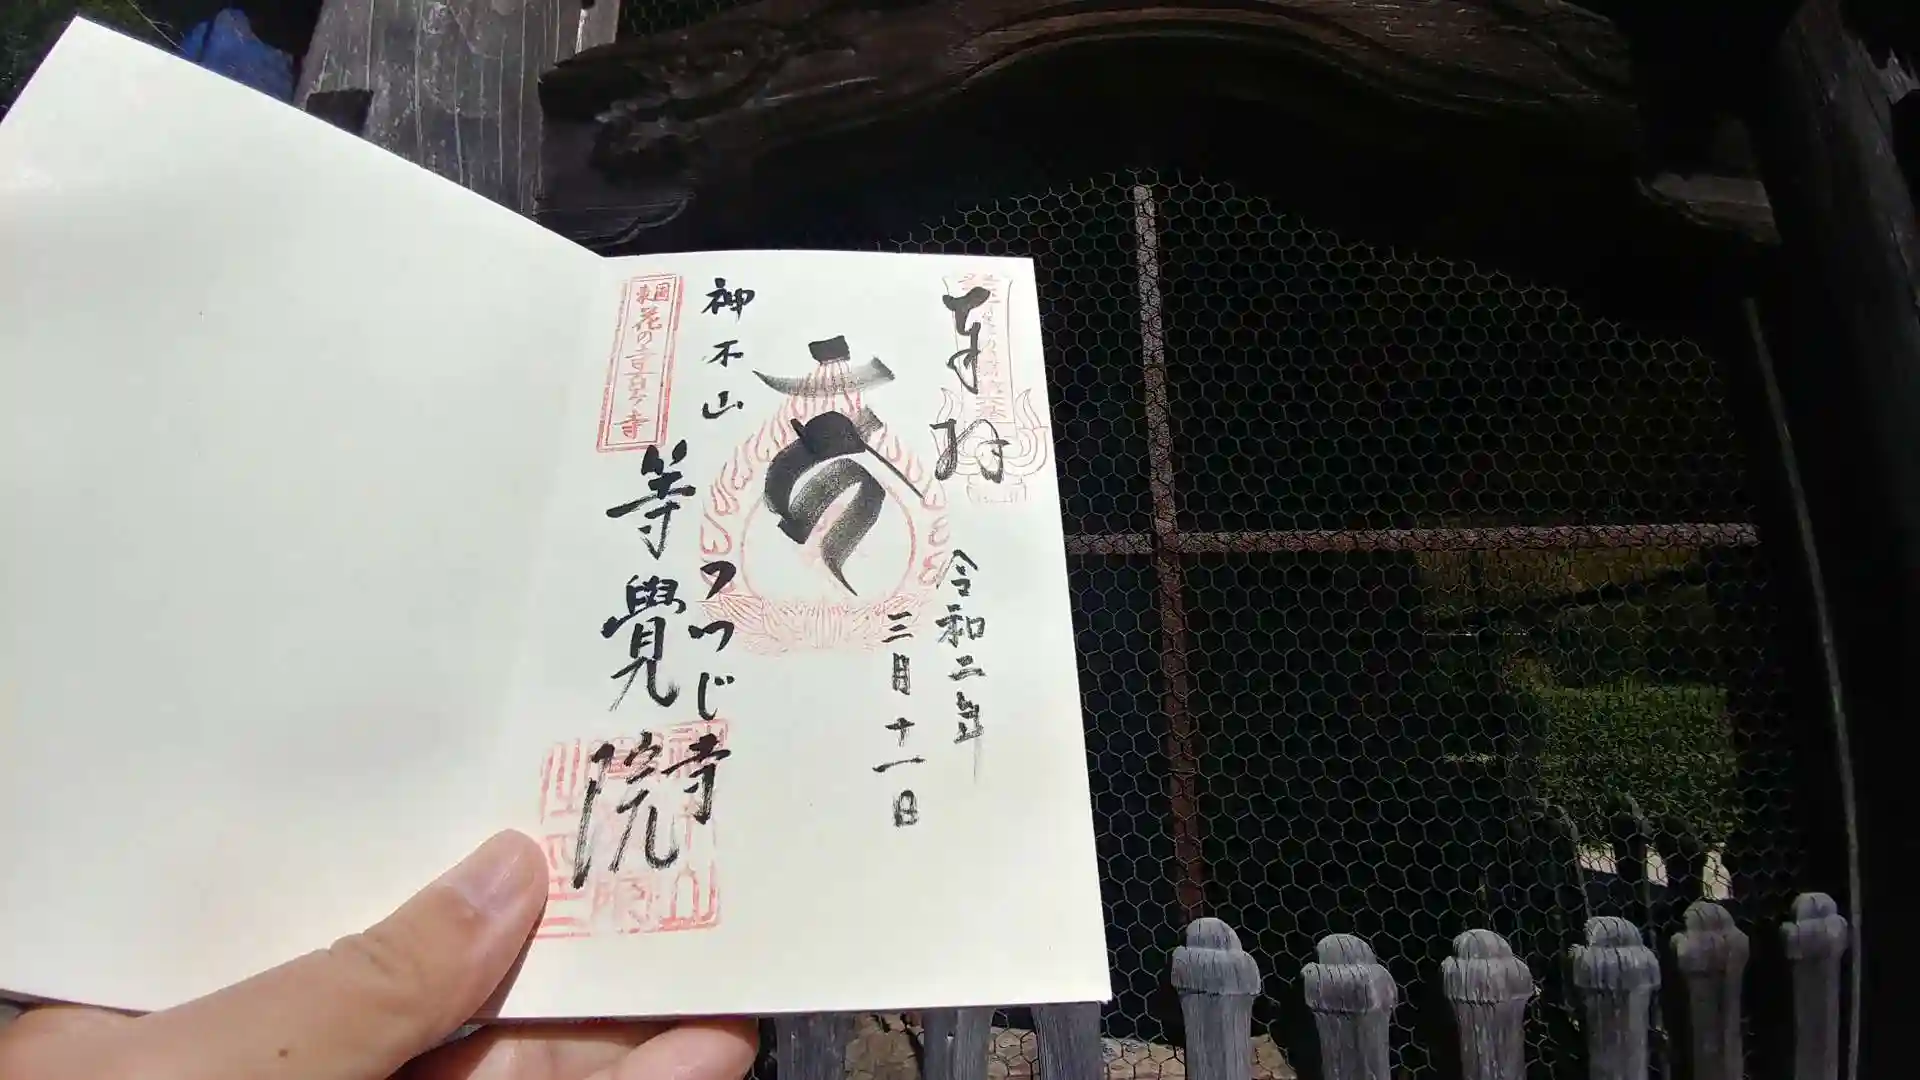 奉拝
令和二年
三月十一日
神木山
つつじ寺
等覺院
東国花の寺百ヶ寺